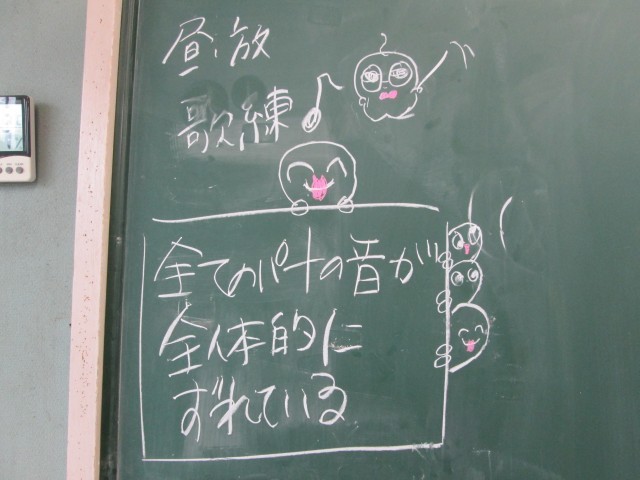 昼・放
歌練♪
全てのパートの音が
全体的に
ずれている